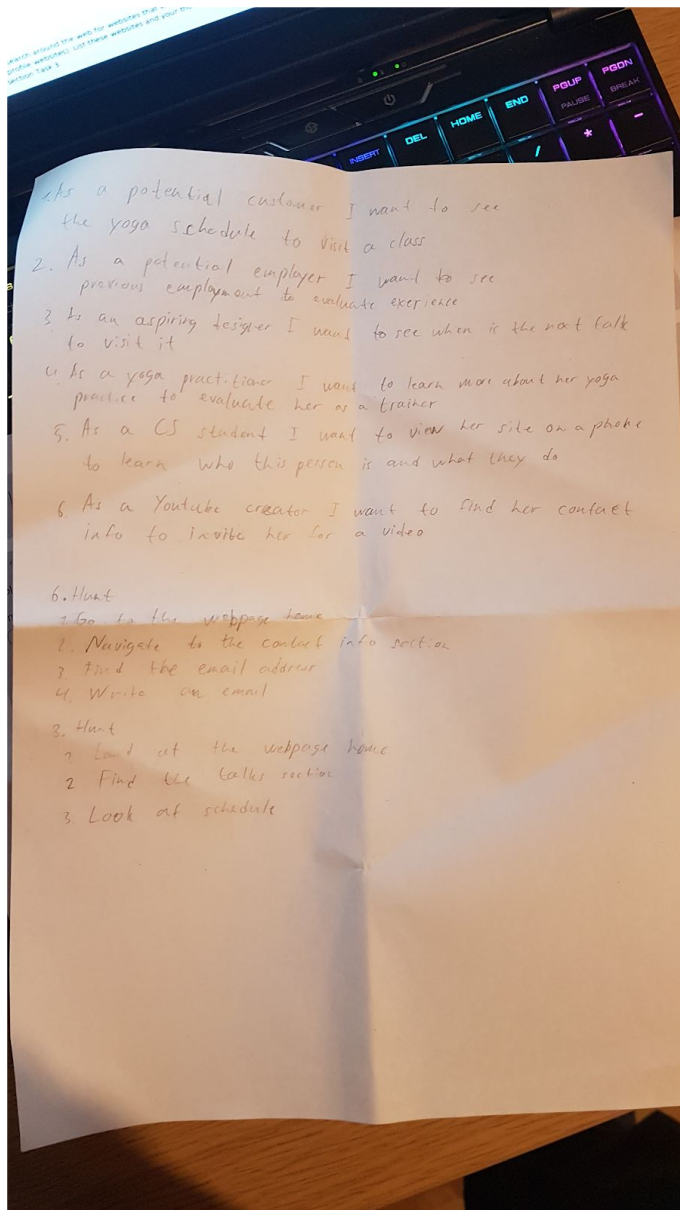 search around the web for websites that
profile websites). List these websites and your
section Task 3.
INSERT
DEL
HOME
END
PGUP
PAUSE
PGDN
BREAK
/
*
-
1. As a potential customer I want to see
the yoga schedule to visit a class
2. As a potential employer I want to see
previous employment to evaluate exerience
3. As an aspiring designer I want to see when is the next talk
to visit it
4. As a yoga practitioner I want to learn more about her yoga
practice to evaluate her as a trainer
5. As a CS student I want to view her site on a phone
to learn who this person is and what they do
6. As a Youtube creator I want to find her contact
info to invite her for a video
6. Hunt
1. Go to the webpage home
2. Navigate to the contact info section
3. Find the email address
4. Write an email
3. Hunt
1. Land at the webpage home
2 Find the talks section
3. Look at schedule